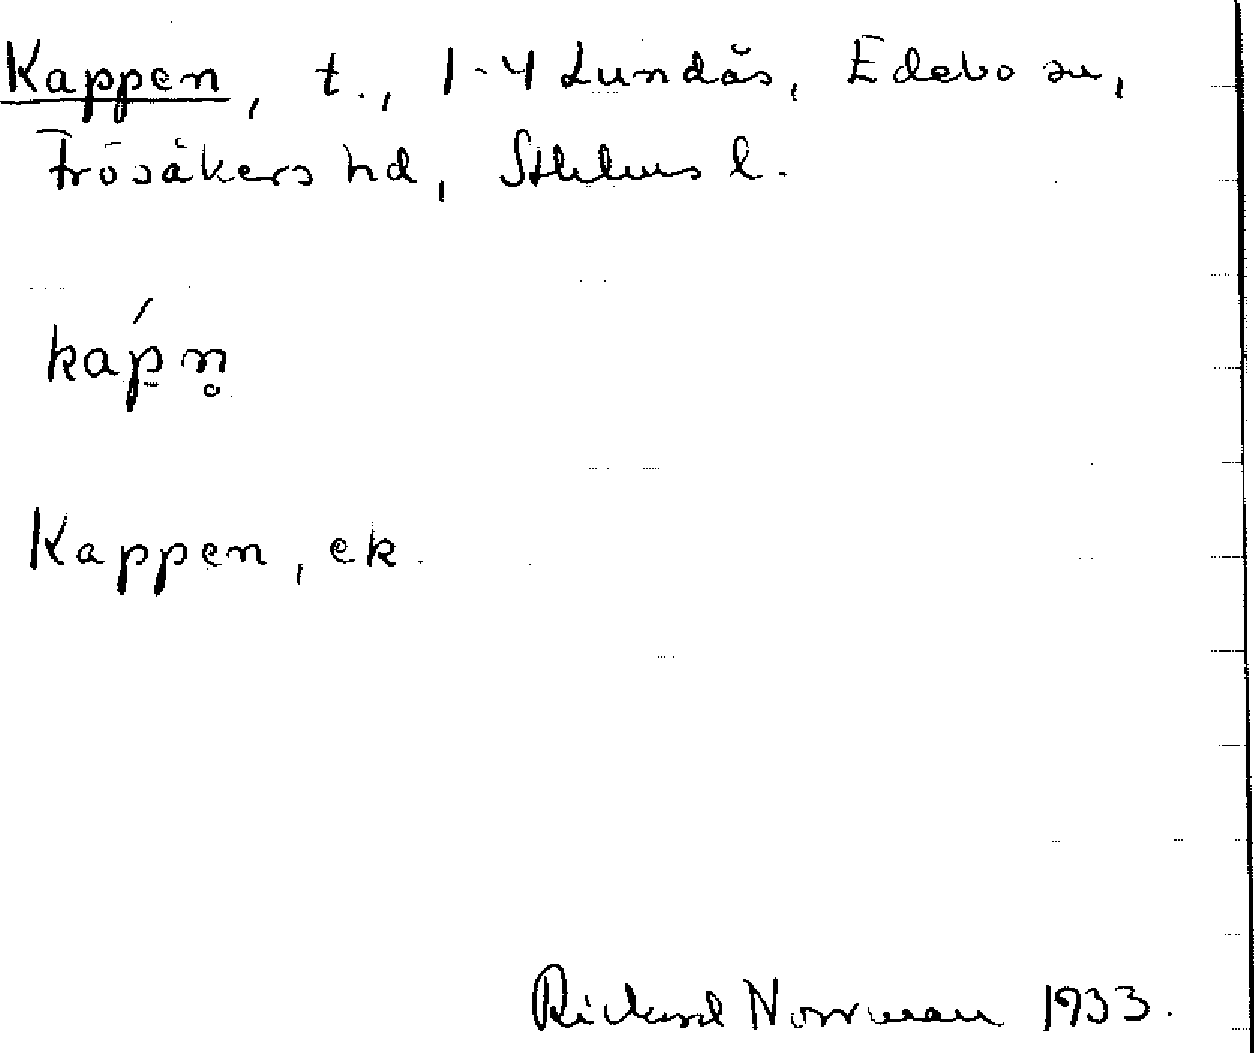 Kappen, t., 1-4 Lundås, Edebo sn,
Frösåkers hd, Sthlms l.
kaṕ̬n̥
Kappen, ek.
Rickard Norrman 1933.